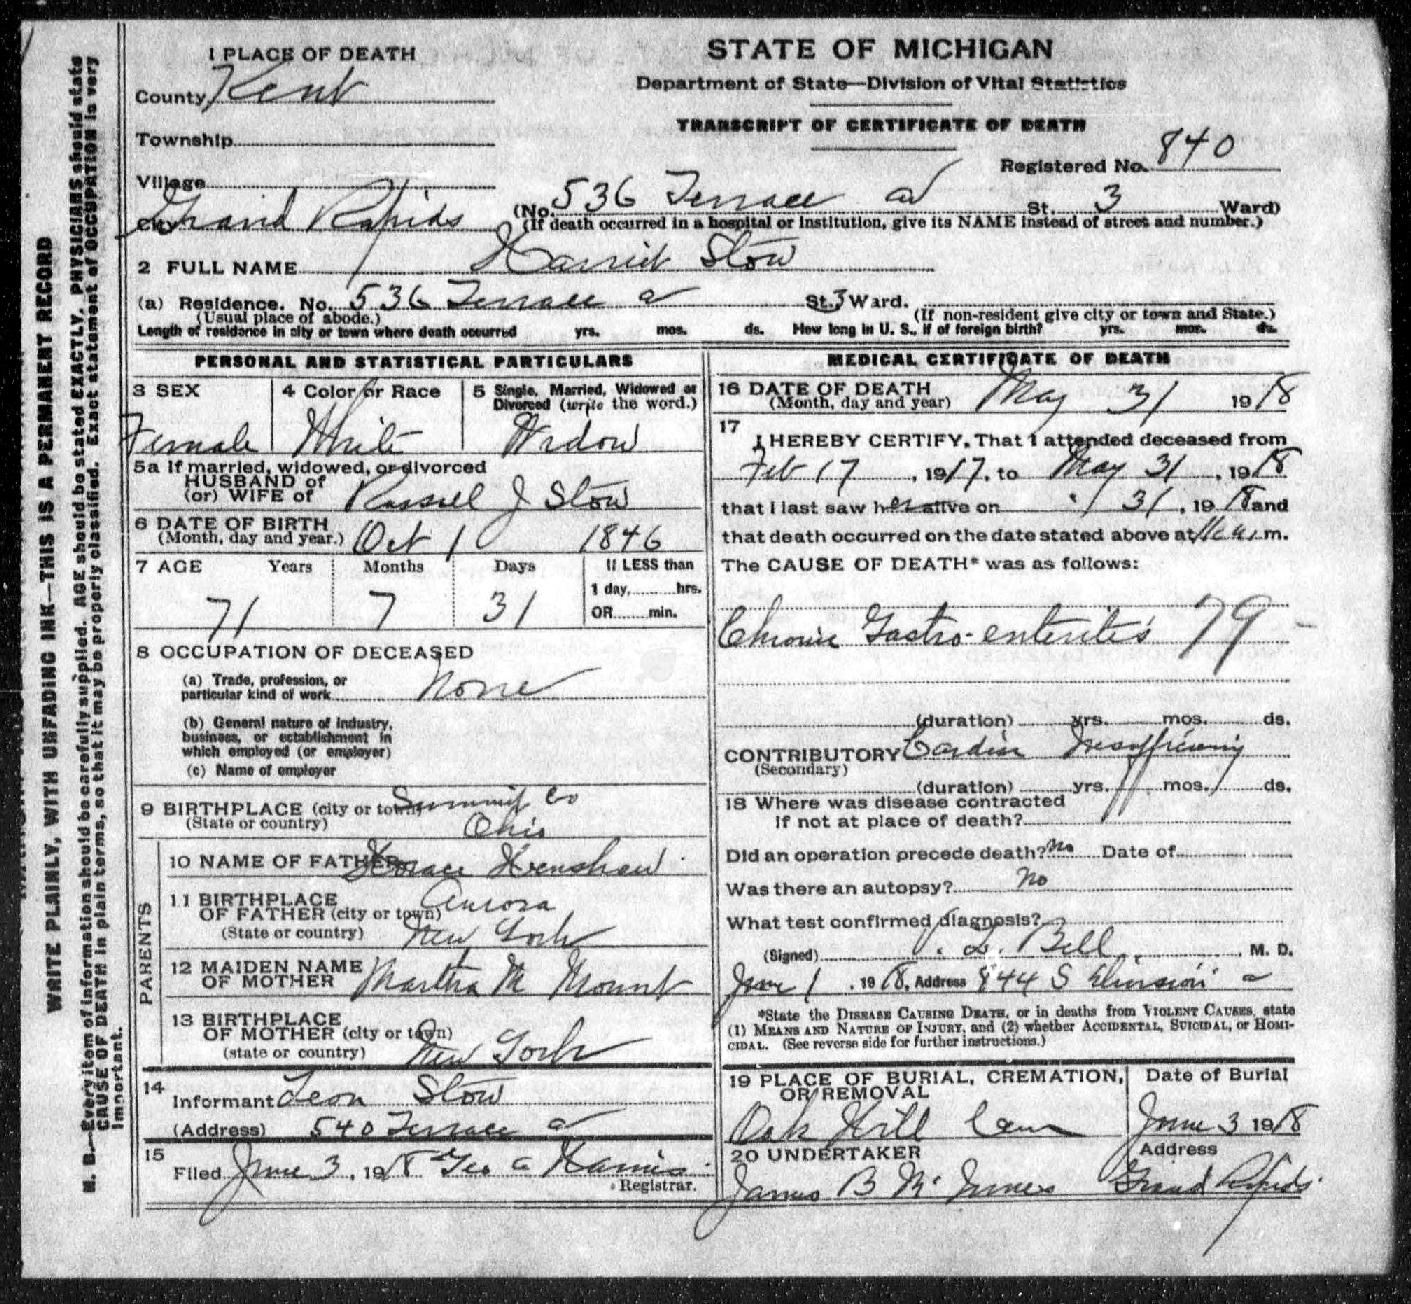 STATE OF MICHIGAN
Department of State—Division of Vital Statistics
TRANSCRIPT OF CERTIFICATE OF DEATH
Registered No. 840
1 PLACE OF DEATH
County Kent
Township
Village
City Grand Rapids (No. 536 Terrace av St. 3 Ward)
(If death occurred in a hospital or institution, give its NAME instead of street and number.)
2 FULL NAME Harriet Stow
(a) Residence. No. 536 Terrace av St. 3 Ward.
(Usual place of abode.) (If non-resident give city or town and State.)
Length of residence in city or town where death occurred yrs. mos. ds. How long in U. S., if of foreign birth? yrs. mos. ds.
PERSONAL AND STATISTICAL PARTICULARS
3 SEX 4 Color or Race 5 Single, Married, Widowed or
Divorced (write the word.)
Female White Widow
5a If married, widowed, or divorced
HUSBAND of
(or) WIFE of Russel J Stow
6 DATE OF BIRTH
(Month, day and year.) Oct 1 1846
7 AGE Years Months Days If LESS than
1 day, hrs.
OR min.
71 7 31
8 OCCUPATION OF DECEASED
(a) Trade, profession, or
particular kind of work None
(b) General nature of industry,
business, or establishment in
which employed (or employer)
(c) Name of employer
9 BIRTHPLACE (city or town) Summit Co
(State or country) Ohio
PARENTS
10 NAME OF FATHER Horace Henshaw
11 BIRTHPLACE
OF FATHER (city or town) Aurora
(State or country) New York
12 MAIDEN NAME
OF MOTHER Martha M Mount
13 BIRTHPLACE
OF MOTHER (city or town)
(state or country) New York
14
Informant Leon Stow
(Address) 540 Terrace av
15
Filed June 3, 1918 Geo A Harris
Registrar.
MEDICAL CERTIFICATE OF DEATH
16 DATE OF DEATH
(Month, day and year) May 31 1918
17
I HEREBY CERTIFY, That I attended deceased from
Feb 17, 1917, to May 31, 1918
that I last saw her alive on " 31, 1918 and
that death occurred on the date stated above at m.
The CAUSE OF DEATH* was as follows:
Chronic Gastro-enterites 79
(duration) yrs. mos. ds.
CONTRIBUTORY Cardiac Insufficiency
(Secondary)
(duration) yrs. mos. ds.
18 Where was disease contracted
if not at place of death?
Did an operation precede death? No Date of
Was there an autopsy? No
What test confirmed diagnosis?
(Signed) Bell, M. D.
June 1, 1918, Address 844 S Division av
*State the DISEASE CAUSING DEATH, or in deaths from VIOLENT CAUSES, state
(1) MEANS AND NATURE OF INJURY, and (2) whether ACCIDENTAL, SUICIDAL, or HOMI-
CIDAL. (See reverse side for further instructions.)
19 PLACE OF BURIAL, CREMATION, Date of Burial
OR REMOVAL
Oak Hill Cem June 3 1918
20 UNDERTAKER Address
James B McInnes Grand Rapids
WRITE PLAINLY, WITH UNFADING INK—THIS IS A PERMANENT RECORD
N. B.—Every item of information should be carefully supplied. AGE should be stated EXACTLY. PHYSICIANS should state
CAUSE OF DEATH in plain terms, so that it may be properly classified. Exact statement of OCCUPATION is very
important.